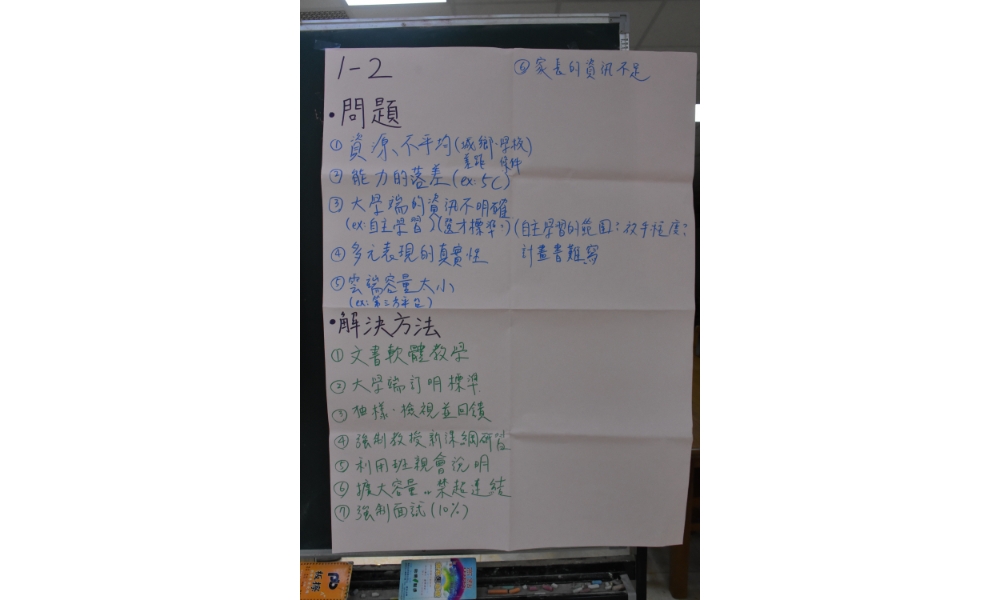 1-2
⑥ 家長的資訊不足
• 問題
① 資源不平均(城鄉.學校)
差距 條件
② 能力的落差(ex 5C)
③ 大學端的資訊不明確
(ex:自主學習)(選才標準.)(自主學習的範圍:放手程度:
④ 多元表現的真實性 計畫書難寫
⑤ 雲端容量太小
(ex:第三方平台)
• 解決方法
① 文書軟體教學
② 大學端訂明標準
③ 抽樣.檢視並回饋
④ 強制教授新課綱研習
⑤ 利用班親會說明
⑥ 擴大容量..禁超連結
⑦ 強制面試(10%)
板擦